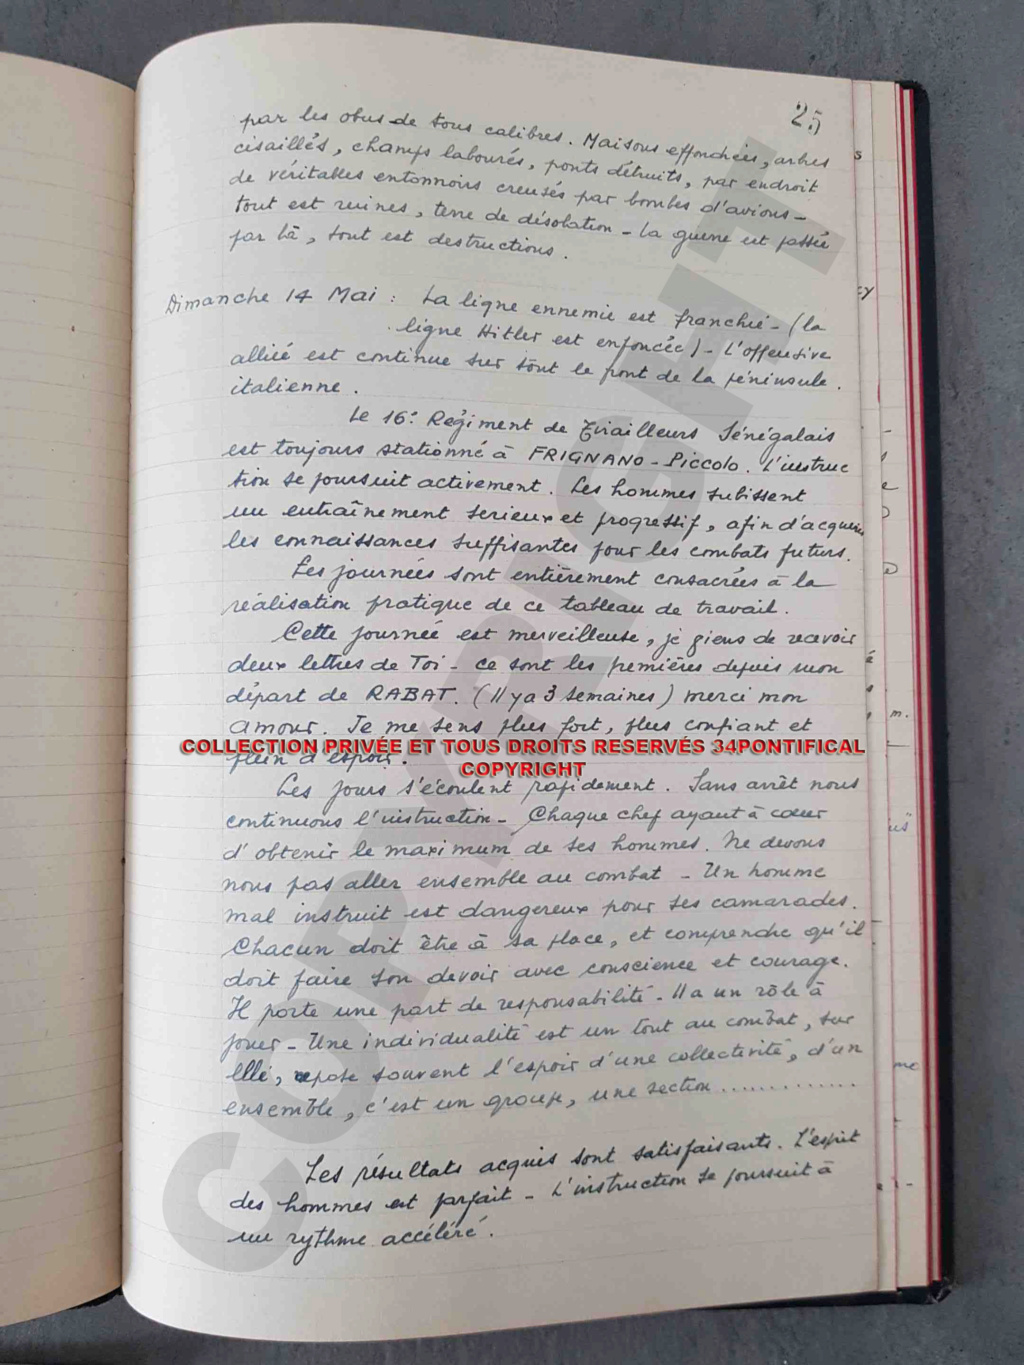 25
par les obus de tous calibres. Maisons effondrées, arbres
cisaillés, champs labourés, ponts détruits, par endroit
de véritables entonnoirs creusés par bombes d'avions -
tout est ruines, terre de désolation - la guerre est passée
par là, tout est destructions.
Dimanche 14 Mai : La ligne ennemie est franchie - (la
ligne Hitler est enfoncée) - L'offensive
alliée est continue sur tout le front de la péninsule
italienne.
Le 16e Régiment de Tirailleurs Sénégalais
est toujours stationné à FRIGNANO - Piccolo. L'instruc
tion se poursuit activement. Les hommes subissent
un entraînement serieux et progressif, afin d'acquerir
les connaissances suffisantes pour les combats futurs.
Les journées sont entièrement consacrées à la
réalisation pratique de ce tableau de travail.
Cette journée est merveilleuse, je viens de recevoir
deux lettres de Toi - ce sont les premières depuis mon
départ de RABAT. (Il y a 3 semaines) merci mon
amour. Je me sens plus fort, plus confiant et
plein d'espoir.
COLLECTION PRIVÉE ET TOUS DROITS RESERVÉS 34PONTIFICAL
COPYRIGHT
Les jours s'écoulent rapidement. Sans arrêt nous
continuons l'instruction - Chaque chef ayant à cœur
d'obtenir le maximum de ses hommes. Ne devons
nous pas aller ensemble au combat - Un homme
mal instruit est dangereux pour ses camarades.
Chacun doit être à sa place, et comprendre qu'il
doit faire son devoir avec conscience et courage.
Il porte une part de responsabilité - Il a un rôle à
jouer - Une individualité est un tout au combat, sur
elle, repose souvent l'espoir d'une collectivité, d'un
ensemble, c'est un groupe, une section .............
Les résultats acquis sont satisfaisants. L'esprit
des hommes est parfait - L'instruction se poursuit à
un rythme accéléré.
COPYRIGHT